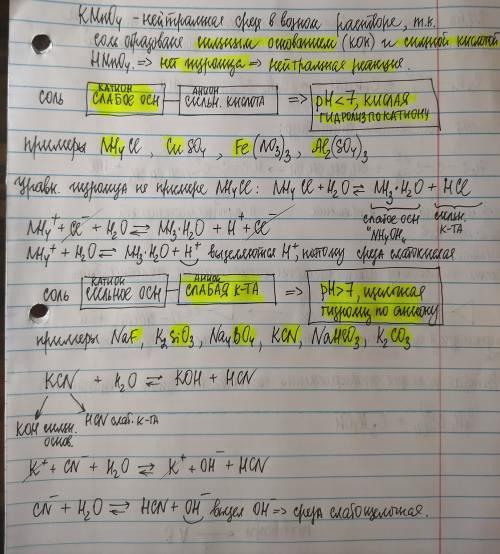 KMnO₄ - нейтральная среда в водном растворе, т.к.
соль образована сильным основанием (KOH) и сильной кислотой
HMnO₄. => нет гидролиза => нейтральная реакция.
КАТИОН АНИОН
СОЛЬ СЛАБОЕ ОСН — СИЛЬН. КИСЛОТА => pH<7, КИСЛАЯ
ГИДРОЛИЗ ПО КАТИОНУ
примеры NH₄Cl, CuSO₄, Fe(NO₃)₃, Al₂(SO₄)₃
Уравн. гидролиза на примере NH₄Cl: NH₄Cl + H₂O ⇌ NH₃·H₂O + HCl
NH₄⁺ + Cl⁻ + H₂O ⇌ NH₃·H₂O + H⁺ + Cl⁻
слабое осн "NH₄OH" сильн. к-та
NH₄⁺ + H₂O ⇌ NH₃·H₂O + H⁺ выделяются H⁺, потому среда слабокислая
КАТИОН АНИОН
СОЛЬ СИЛЬНОЕ ОСН — СЛАБАЯ К-ТА => pH>7, щелочная
гидролиз по аниону
примеры NaF, K₂SiO₃, Na₄BO₄, KCN, NaHCO₃, K₂CO₃
KCN + H₂O ⇌ KOH + HCN
KOH сильн. основ. HCN слаб. к-та
K⁺ + CN⁻ + H₂O ⇌ K⁺ + OH⁻ + HCN
CN⁻ + H₂O ⇌ HCN + OH⁻ выдел OH⁻ => среда слабощелочная.